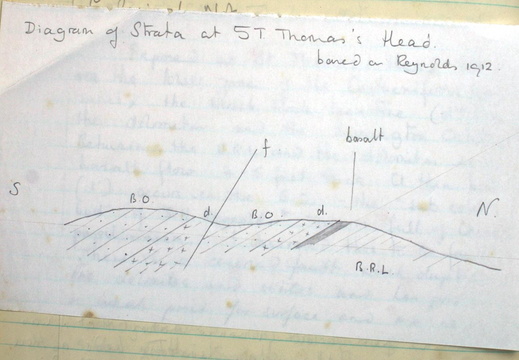 Diagram of Strata at ST Thomas's Head.
based on Reynolds 1912.
f
basalt
S
B.O
d.
B.O
d.
N.
B.R.L